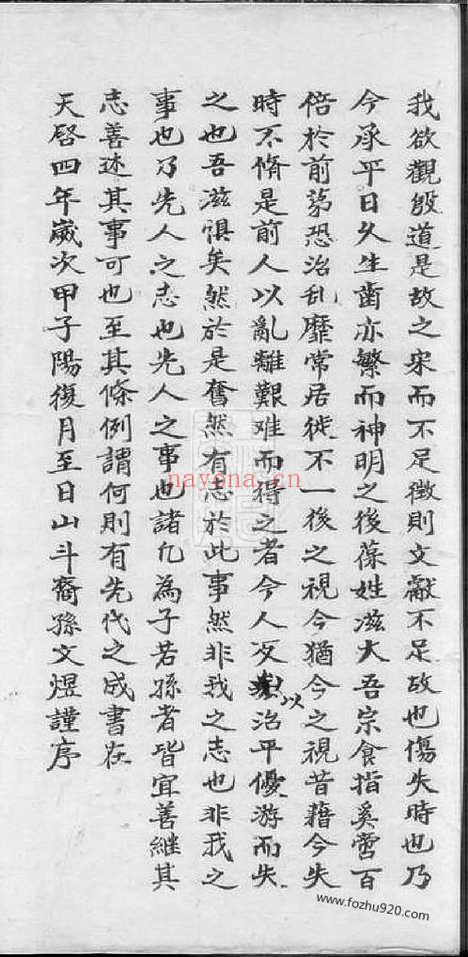 我欲觀殷道是故之宋而不足徵則文獻不足故也傷失時也乃
今承平日久生齒亦繁而神明之後葆姓滋大吾宗食指奚啻百
倍於前第恐治亂靡常居徙不一後之視今猶今之視昔藉今失
時不脩是前人以亂離艱难而得之者今人反以治平優游而失
之也吾滋惧矣然於是奮然有志於此事然非我之志也非我之
事也乃先人之志也先人之事也諸凢為子若孫者皆宜善継其
志善述其事可也至其條例謂何則有先代之成書在
天啓四年嵗次甲子陽復月至日山斗裔孫文煜謹序
nayona.cn
www.fozhu920.com